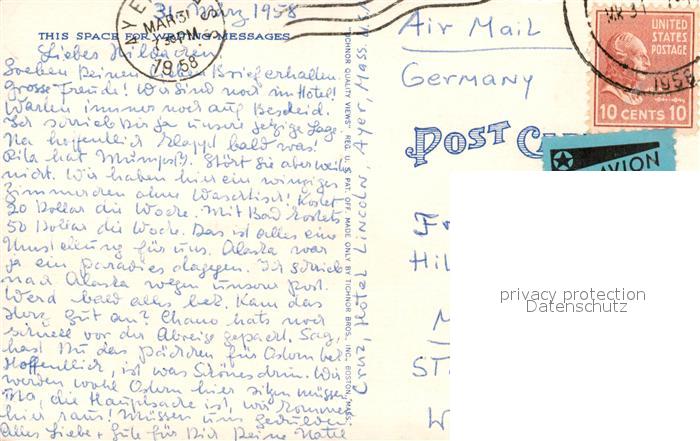 31. März 1958
THIS SPACE FOR WRITING MESSAGES
Liebes Hildchen
Soeben Deinen lieben Brief erhalten.
Grosse Freude! Wir sind noch im Hotel!
Warten immer noch auf Bescheid.
Ich schrieb Dir ja unsere jetzige Lage.
Na hoffentlich klappt bald was!
Rita hat Mumps!! Stört sie aber weiter
nicht. Wir haben hier ein winziges
Zimmerchen ohne Waschtisch! Kostet
20 Dollar die Woche. Mit Bad kostets
50 Dollar die Woche. Das ist alles eine
Umstellung für uns. Alaska war
ja ein Paradies dagegen. Ich schrieb
nach Alaska wegen unsere Post.
Werd bald alles bek. Kam das
Herz gut an? hats noch
schnell vor der Abreise gepackt. Sag,
hast Du das päckchen für Ostern bek.
Hoffentlich, ist was Schönes drin. Wir
werden wohl Ostern hier sitzen müssen
Na, die Hauptsache ist, wir kommen
hier raus! Müssen uns gedulden
Alles Liebe + Gute für Dich Deine
MAR 31
PM
1958
TICHNOR QUALITY VIEWS, REG. U. S. PAT. OFF. MADE ONLY BY TICHNOR BROS., INC., BOSTON, MASS.
Cruz, Hotel Lincoln, Ayer, Mass.
Air Mail
Germany
POST
UNITED
STATES
POSTAGE
10 CENTS 10
1958
AVION
F
Hil
M
ST
W
privacy protection
Datenschutz